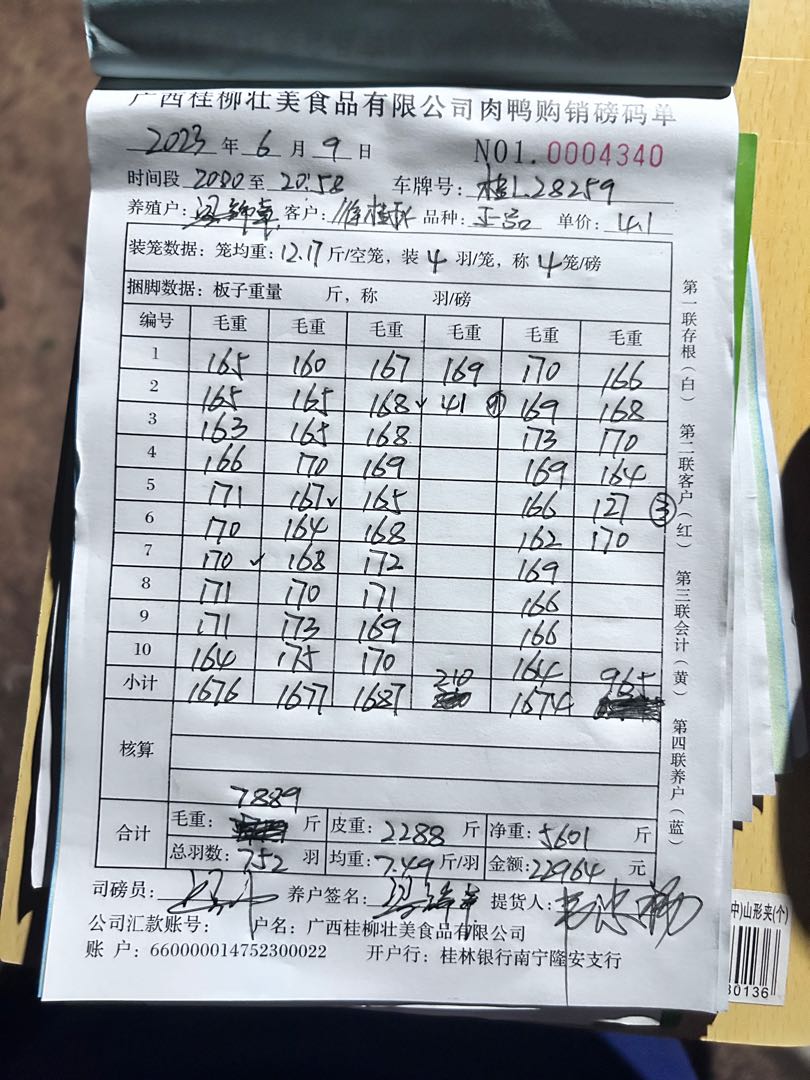 广西桂柳壮美食品有限公司肉鸭购销磅码单
2023 年 6 月 9 日 NO1.0004340
时间段 2080 至 20:58 车牌号: 桂L28259
养殖户: 客户: 品种: 单价: 4.1
装笼数据: 笼均重: 12.17 斤/空笼, 装 4 羽/笼, 称 4 笼/磅
捆脚数据: 板子重量 斤, 称 羽/磅
编号 毛重 毛重 毛重 毛重 毛重 毛重
1 165 160 167 169 170 166
2 165 165 168 ✓ 41 ① 169 168
3 163 165 168 173 170
4 166 170 169 169 164
5 171 167 ✓ 165 166 127 ③
6 170 164 168 162 170
7 170 ✓ 168 172 169
8 171 170 171 166
9 171 173 169 166
10 164 175 170 164
小计 1676 1677 1687 210 1674 965
核算
合计 毛重: 7889 斤 皮重: 2288 斤 净重: 5601 斤
总羽数: 752 羽 均重: 7.49 斤/羽 金额: 22964 元
司磅员: 养户签名: 提货人:
公司汇款账号: 户名: 广西桂柳壮美食品有限公司
账 户: 660000014752300022 开户行: 桂林银行南宁隆安支行
第一联存根(白) 第二联客户(红) 第三联会计(黄) 第四联养户(蓝)
中)山形夹(个)
30136